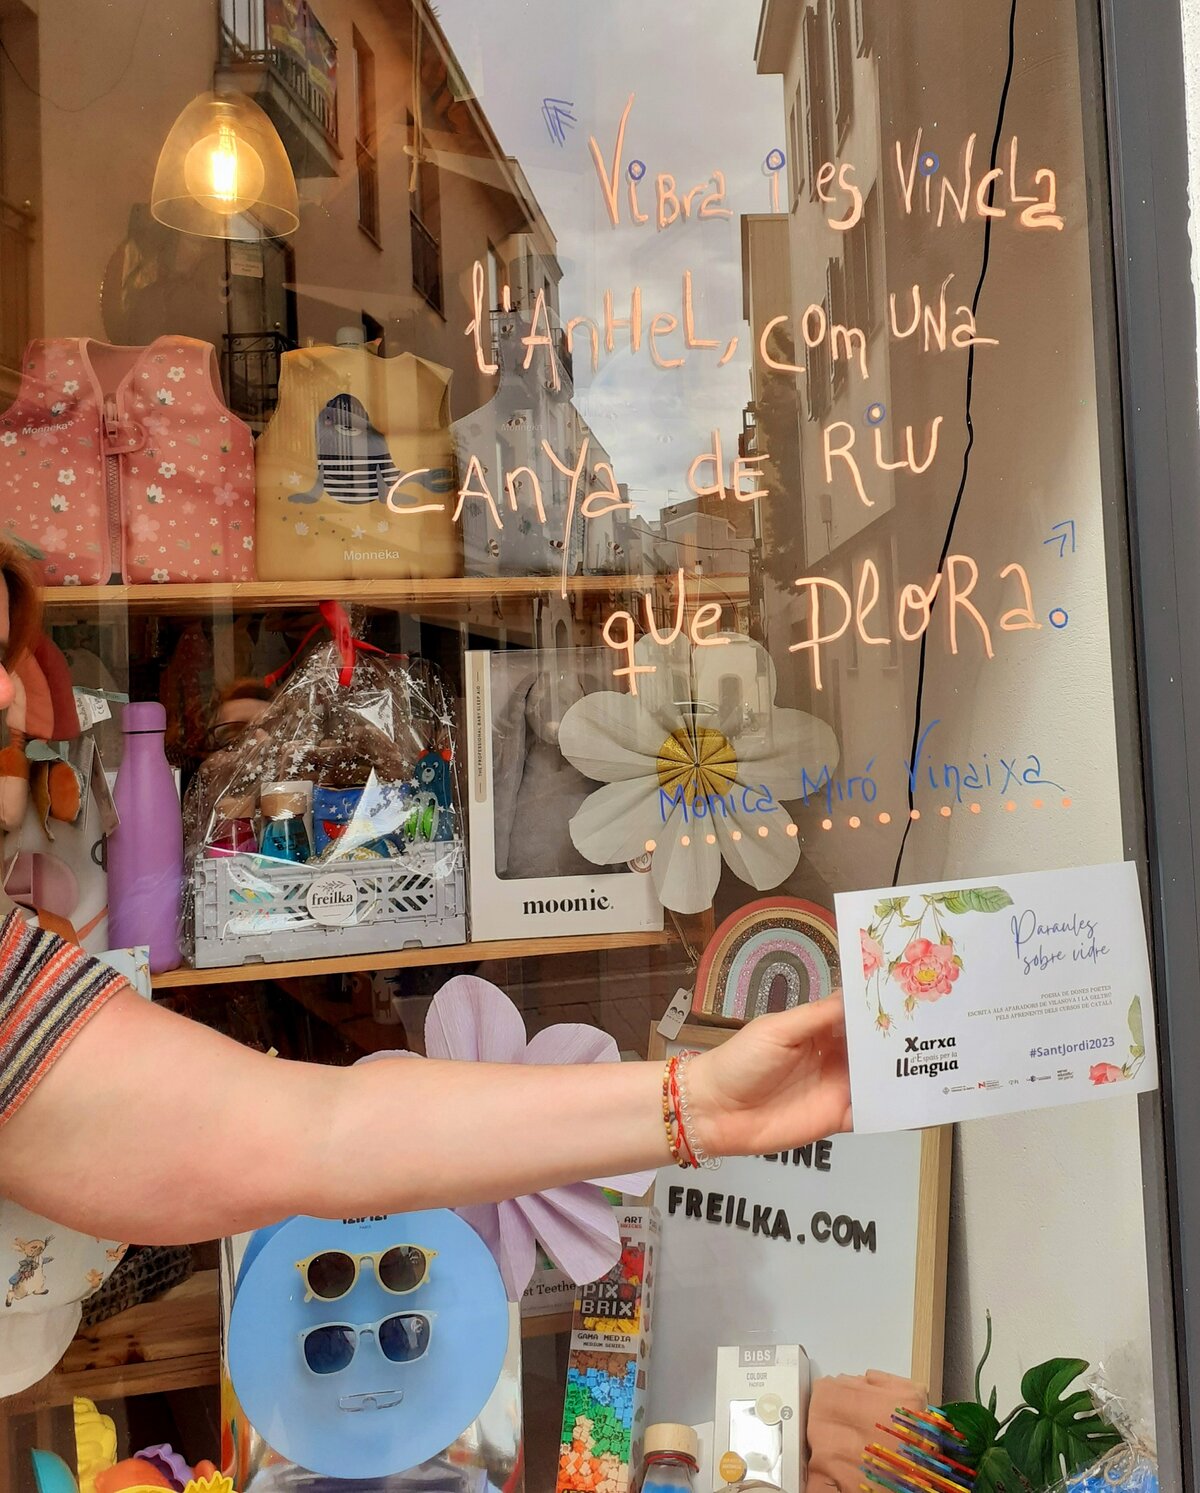 "Vibra i es vincla
l'anhel, com una
canya de riu
que plora."
Mònica Miró Vinaixa
Monneka
Monneka
Monneka
THE PROFESSIONAL BABY SLEEP AID
freilka
moonie.
Paraules
sobre vidre
POESIA DE DONES POETES
ESCRITA ALS APARADORS DE VILANOVA I LA GELTRÚ
PELS APRENENTS DELS CURSOS DE CATALÀ
Xarxa
d'Espais per la
llengua
#SantJordi2023
FREILKA.COM
IZIPIZI
PARIS
ART
PIX
BRIX
GAMA MEDIA
MEDIUM SERIES
BIBS
COLOUR
PACIFIER
2